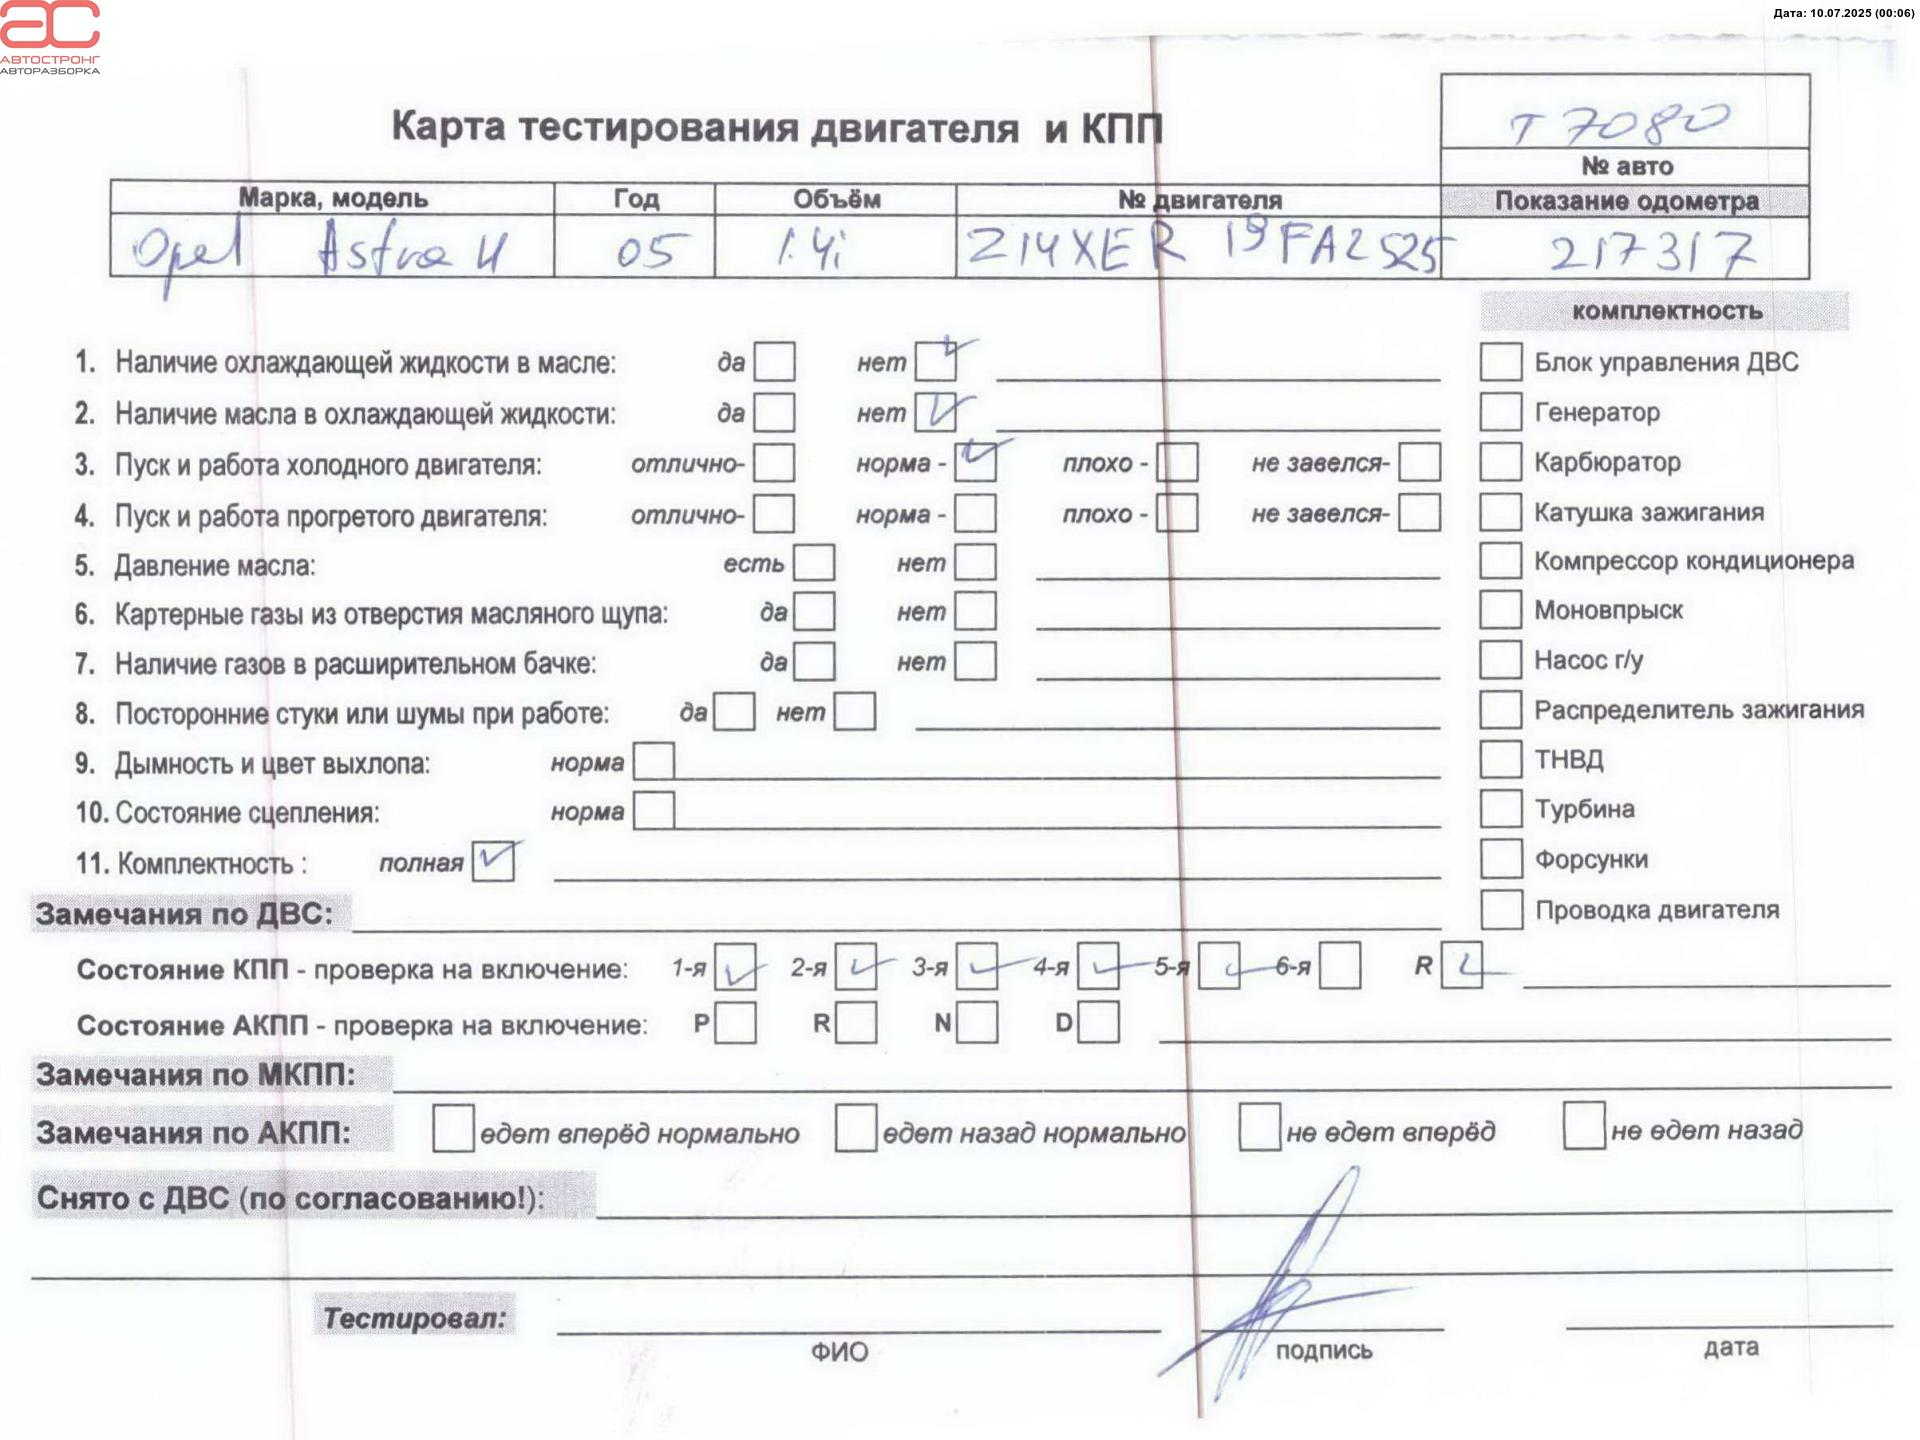 Дата: 10.07.2025 (00:06)
АС
АВТОСТРОНГ
АВТОРАЗБОРКА
Карта тестирования двигателя и КПП
T 7080
№ авто
Марка, модель Год Объём № двигателя Показание одометра
Opel Astra H 05 1.4i Z14XER 19FA2525 217317
комплектность
1. Наличие охлаждающей жидкости в масле: да нет
Блок управления ДВС
2. Наличие масла в охлаждающей жидкости: да нет
Генератор
3. Пуск и работа холодного двигателя: отлично- норма - плохо - не завелся-
Карбюратор
4. Пуск и работа прогретого двигателя: отлично- норма - плохо - не завелся-
Катушка зажигания
5. Давление масла: есть нет
Компрессор кондиционера
6. Картерные газы из отверстия масляного щупа: да нет
Моновпрыск
7. Наличие газов в расширительном бачке: да нет
Насос г/у
8. Посторонние стуки или шумы при работе: да нет
Распределитель зажигания
9. Дымность и цвет выхлопа: норма
ТНВД
10. Состояние сцепления: норма
Турбина
11. Комплектность : полная
Форсунки
Замечания по ДВС:
Проводка двигателя
Состояние КПП - проверка на включение: 1-я 2-я 3-я 4-я 5-я 6-я R
Состояние АКПП - проверка на включение: P R N D
Замечания по МКПП:
Замечания по АКПП: едет вперёд нормально едет назад нормально не едет вперёд не едет назад
Снято с ДВС (по согласованию!):
Тестировал:
ФИО подпись дата